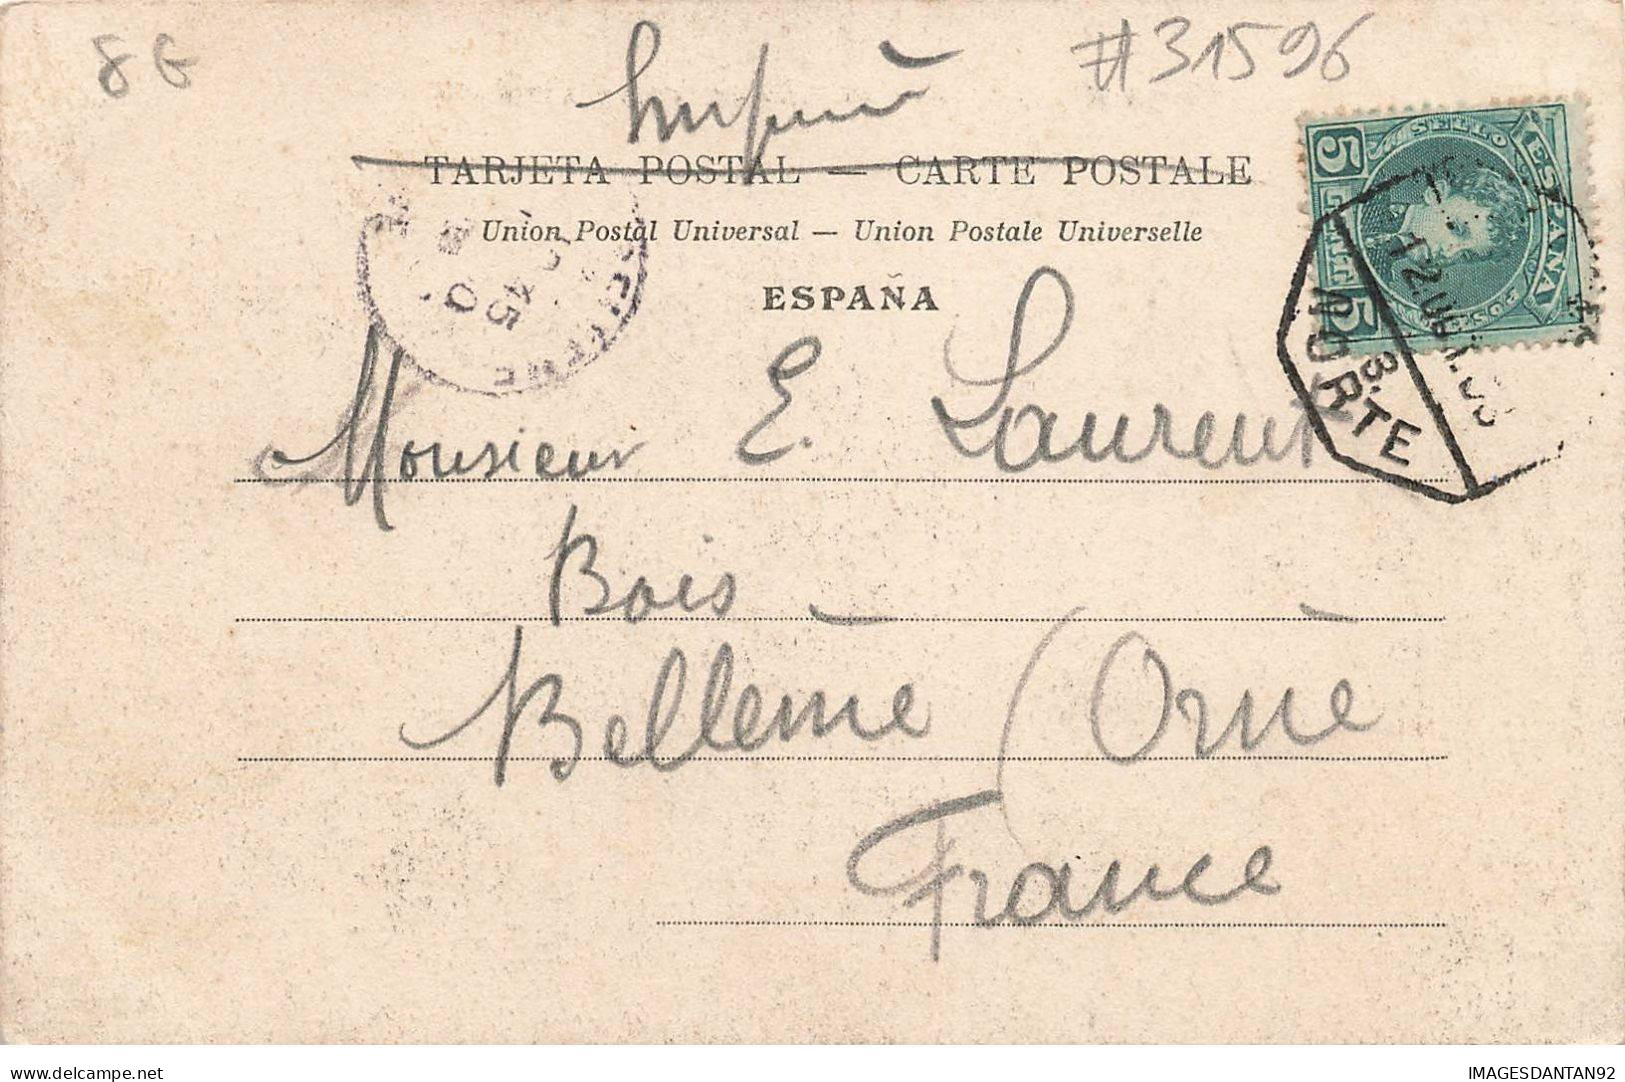 8 G
#31596
Imprimé
TARJETA POSTAL — CARTE POSTALE
Union Postal Universal — Union Postale Universelle
ESPAÑA
SELLO
ESPAÑA
5 CENT 5
NORTE
15
Monsieur E. Laurent
Bois
Bellème (Orne
France
delcampe.net
IMAGESDANTAN92